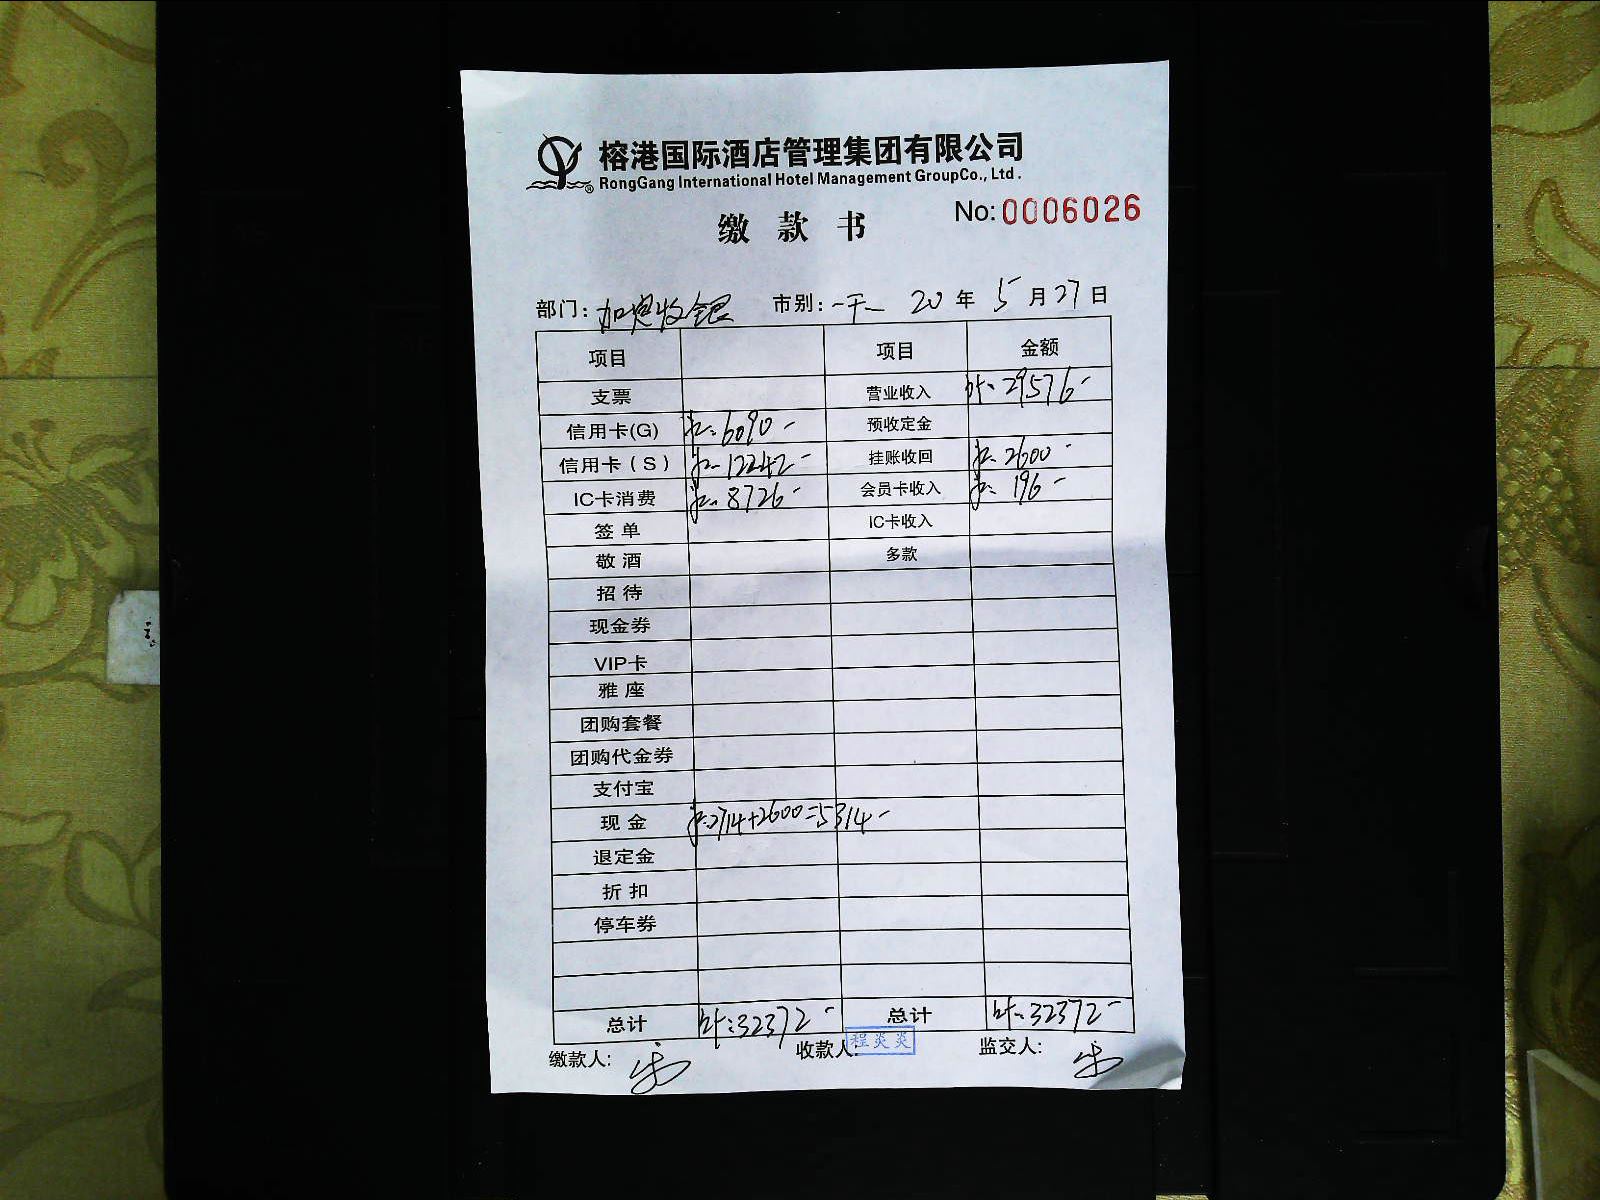 榕港国际酒店管理集团有限公司
RongGang International Hotel Management GroupCo., Ltd.
缴款书 No:0006026
部门: 收银 市别: 20年5月27日
项目 项目 金额
支票 营业收入 29576-
信用卡(G) 6090- 预收定金
信用卡(S) 12242- 挂账收回 2600-
IC卡消费 8726- 会员卡收入 196-
签单 IC卡收入
敬酒 多款
招待
现金券
VIP卡
雅座
团购套餐
团购代金券
支付宝
现金 2714+2600=5314-
退定金
折扣
停车券
总计 32372- 总计 32372-
缴款人: 收款人: 程炎炎 监交人: